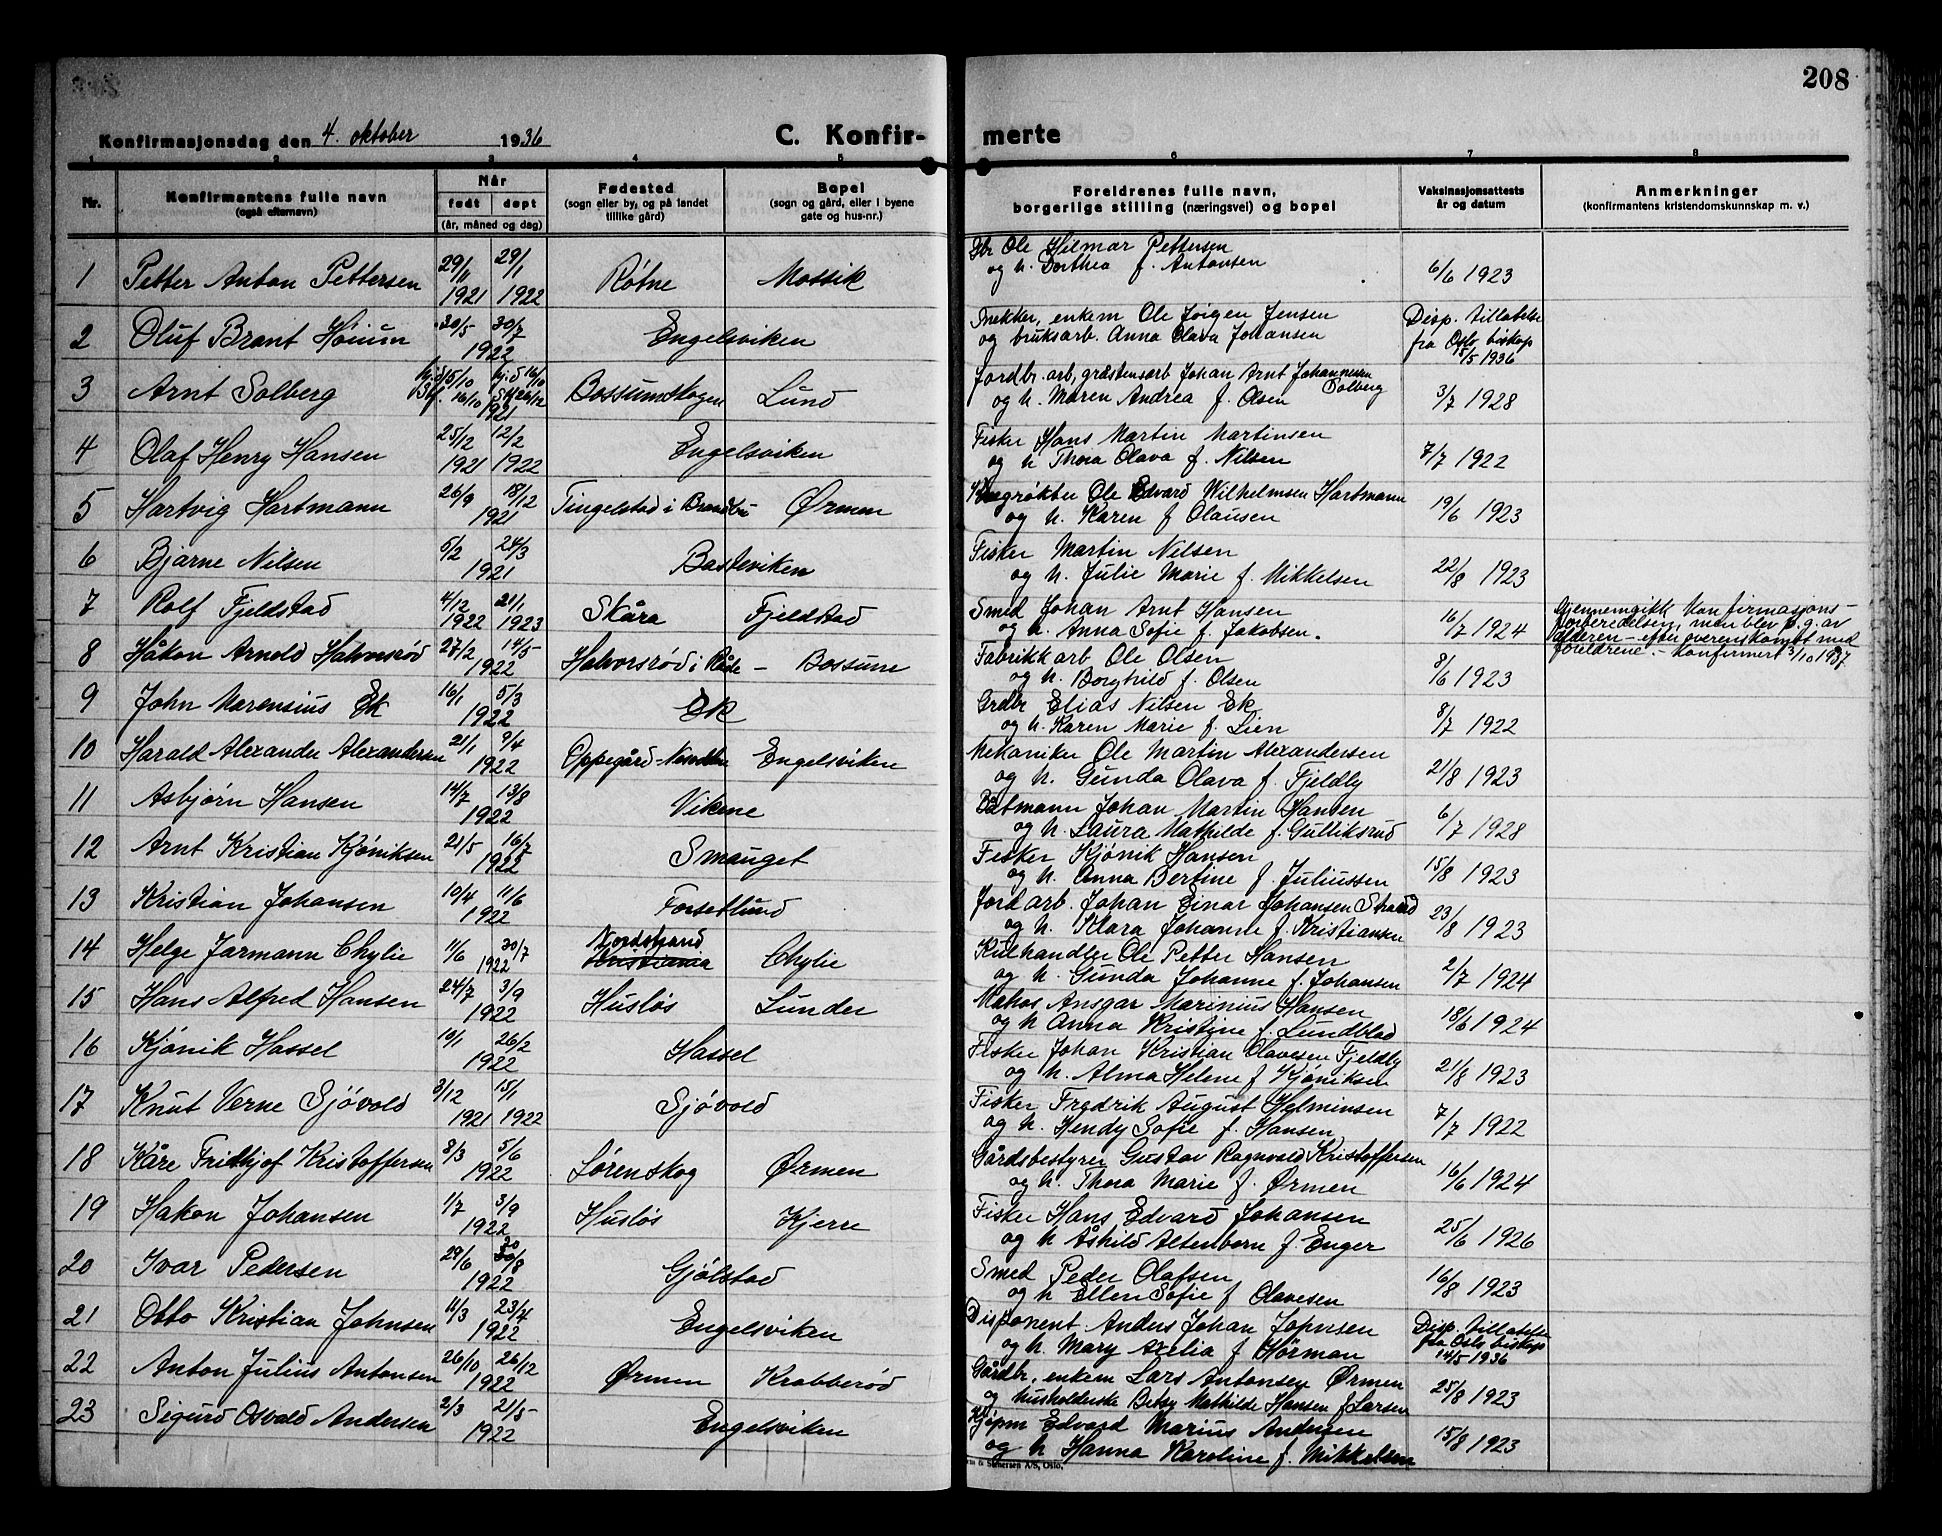 208
Konfirmasjonsdag den 4. oktober 1936
C. Konfir- merte
1 2 3 4 5 6 7 8
Nr.
Konfirmantens fulle navn
(også efternavn)
Når
født døpt
(år, måned og dag)
Fødested
(sogn eller by, og på landet
tillike gård)
Bopel
(sogn og gård, eller i byene
gate og hus-nr.)
Foreldrenes fulle navn,
borgerlige stilling (næringsvei) og bopel
Vaksinasjonsattests
år og datum
Anmerkninger
(konfirmantens kristendomskunnskap m. v.)
1 Petter Anton Pettersen 29/11 1921 29/1 1922 Røtne Mossik
Gbr Ole Hilmar Pettersen
og h. Dorthea f. Antonsen 6/6 1923
2 Oluf Brant Høium 30/5 30/7 1922 Engelsviken
Snekker, enkem Ole Jørgen Jensen
og bruksarb. Anna Olava Johansen
Disp. tillatelse
fra Oslo biskop
15/5 1936
3 Arnt Solberg hj.d 15/10 16/10 hj.d 16/10 26/12 1921 Bossumskogen Lund
Jordbr. arb, gråstensarb Johan Arnt Johannesen Solberg
og h. Maren Andrea f. Olsen 3/7 1928
4 Olaf Henry Hansen 25/12 1921 12/2 1922 Engelsviken
Fisker Hans Martin Martinsen
og h Thora Olava f. Nilsen 7/7 1922
5 Hartvig Hartmann 26/9 18/12 1921 Tingelstad i Brandbu Ørmen
Ole Edvard Wilhelmsen Hartmann
og h. Karen f Olausen 19/6 1923
6 Bjarne Nilsen 5/2 24/3 1921 Basteviken
Fisker Martin Nilsen
og h. Julie Marie f. Mikkelsen 22/8 1923
7 Rolf Fjeldstad 4/12 1922 21/1 1923 Skåra Fjeldstad
Smed Johan Arnt Hansen
og h. Anna Sofie f. Jakobsen. 16/7 1924
Gjennemgikk konfirmasjons-
forberedelsen, men blev p.g. av
alderen - efter overenskomst med
foreldrene. - Konfirmert 3/10 1937
8 Håkon Arnold Halvorsrød 27/2 14/5 1922 Halvorsrød i Råde - Bossum
Fabrikkarb Ole Olsen
og h. Borghild f. Olsen 8/6 1923
9 John Marensius Ek 16/1 5/3 1922 Ek
Grdbr Elias Nilsen Ek
og h. Karen Marie f. Lien 8/7 1922
10 Harald Alexander Alexandersen 21/1 9/4 1922 Oppegård-Nesodden Engelsviken
Mekaniker Ole Martin Alexandersen
og h. Gunda Olava f. Fjeldly 21/8 1923
11 Asbjørn Hansen 14/7 13/8 1922 Vikene
Båtmann Johan Martin Hansen
og h. Laura Mathilde f. Gulliksrud 6/7 1928
12 Arnt Kristian Kjøniksen 21/5 16/7 1922 Smauget
Fisker Kjønik Hansen
og h. Anna Bertine f. Juliussen 15/8 1923
13 Kristian Johansen 10/4 11/6 1922 Forsetlund
Jordarb. Johan Einar Johansen Strand
og h. Klara Johanne f. Kristiansen 23/8 1923
14 Helge Jarmann Chylie 11/6 30/7 1922 Nordstrand Kristiania Chylie
Kulhandler Ole Petter Hansen
og h. Gunda Johanne f. Johansen 2/7 1924
15 Hans Alfred Hansen 24/7 3/9 1922 Husløs Lunder
Matros Ansgar Marinius Hansen
og h Anna Kristine f. Lundblad 18/6 1924
16 Kjønik Hassel 10/1 26/2 1922 Hassel
Fisker Johan Kristian Olavesen Fjeldly
og h. Alma Helene f Kjøniksen 21/8 1923
17 Knut Verne Sjøvold 3/12 1921 15/1 1922 Sjøvold
Fisker Fredrik August Helminsen
og h. Hendy Sofie f. Hansen 7/7 1922
18 Kåre Fridthjof Kristoffersen 8/3 5/6 1922 Lørenskog Ørmen
Gårdsbestyrer Gustav Ragnvald Kristoffersen
og h. Thora Marie f. Ørmen 16/6 1924
19 Hakon Johansen 1/7 3/9 1922 Husløs Kjerre
Fisker Hans Edvard Johansen
og h Åshild Altenborn f. Enger 25/6 1926
20 Ivar Pedersen 29/6 20/8 1922 Gjølstad
Smed Peder Olafsen
og h Ellen Sofie f Olavesen 16/8 1923
21 Otto Kristian Johnsen 11/3 23/4 1922 Engelsviken
Disponent Anders Johan Johnsen
og h. Mary Axelia f Hörman
Disp. tillatelse
fra Oslo biskop
14/5 1936
22 Anton Julius Antonsen 26/10 26/12 1922 Ørmen Krabberød
Gårdbr, enkem Lars Antonsen Ørmen
og husholderske Betsy Mathilde Hansen f Larsen 25/8 1923
23 Sigurd Osvald Andersen 2/3 21/5 1922 Engelsviken
Kjøpm Edvard Marius Andersen
og h Hanna Karoline f. Mikkelsen 15/8 1923